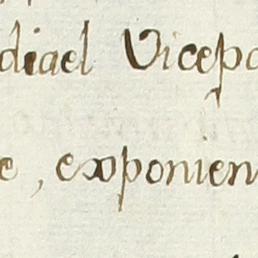 diael Vicepa
e, exponien